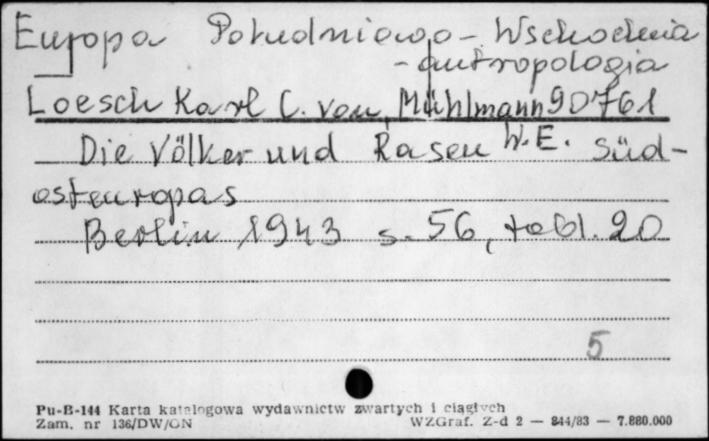 Europa Południowo-Wschodnia
-antropologia
Loesch Karl C. von, Mühlmann 90761
Die Völker und Rasen W.E. Süd-
osteuropas
Berlin 1943 s. 56, tabl. 20
5
Pu-B-144 Karta katalogowa wydawnictw zwartych i ciągłych
Zam. nr 136/DW/ON WZGraf. Z-d 2 — 844/83 — 7.880.000